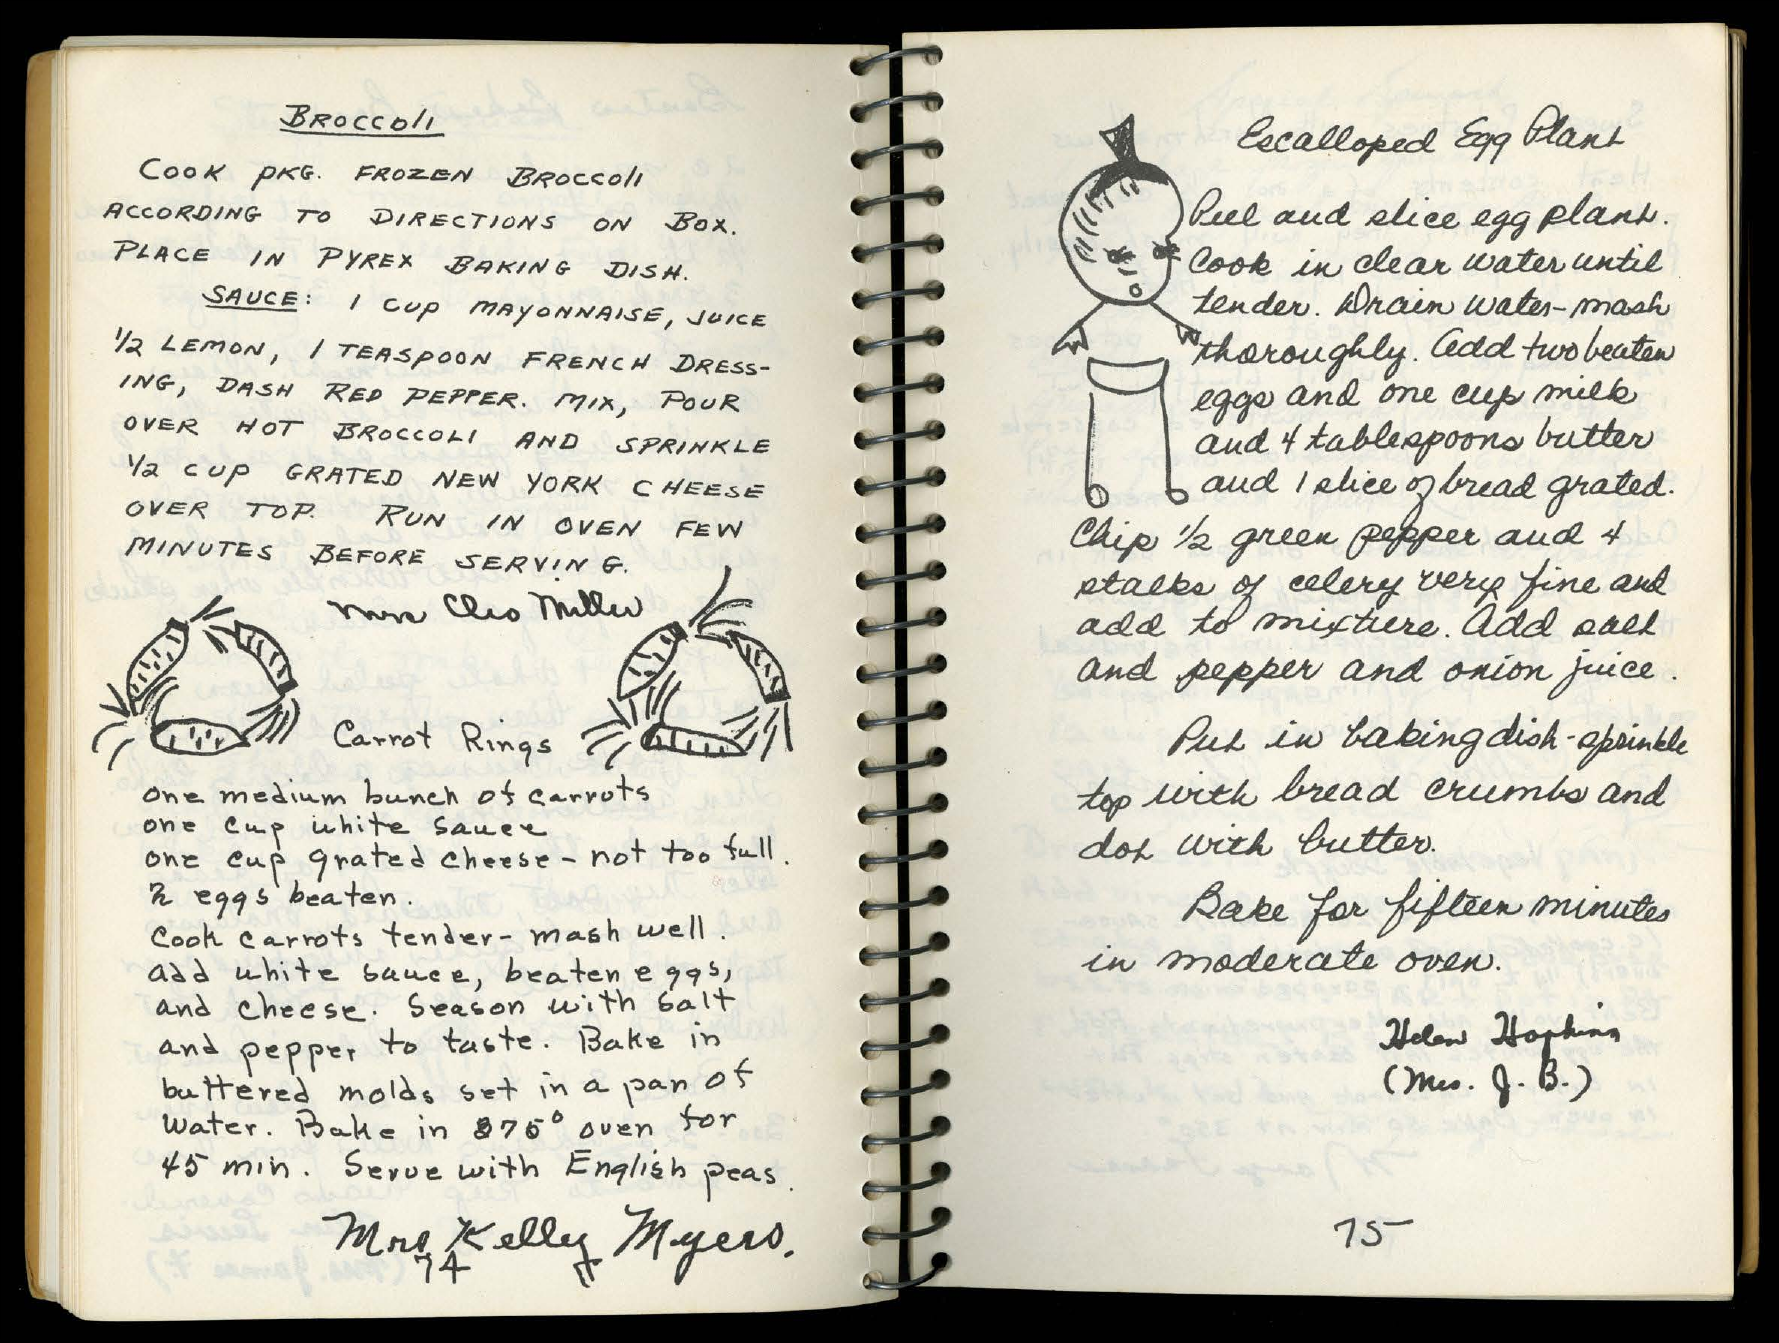 BROCCOLI
COOK PKG. FROZEN BROCCOLI
ACCORDING TO DIRECTIONS ON BOX.
PLACE IN PYREX BAKING DISH.
SAUCE: 1 CUP MAYONNAISE, JUICE
1/2 LEMON, 1 TEASPOON FRENCH DRESS-
ING, DASH RED PEPPER. MIX, POUR
OVER HOT BROCCOLI AND SPRINKLE
1/2 CUP GRATED NEW YORK CHEESE
OVER TOP. RUN IN OVEN FEW
MINUTES BEFORE SERVING.
Mrs Cleo Miller
Carrot Rings
one medium bunch of carrots
one cup white sauce
one cup grated cheese - not too full.
2 eggs beaten.
Cook carrots tender - mash well.
add white sauce, beaten eggs,
and cheese. Season with salt
and pepper to taste. Bake in
buttered molds set in a pan of
water. Bake in 375° oven for
45 min. Serve with English peas.
Mrs Kelly Myers.
74
Escalloped Egg Plant
Peel and slice egg plant.
Cook in clear water until
tender. Drain water - mash
thoroughly. Add two beaten
eggs and one cup milk
and 4 tablespoons butter
and 1 slice of bread grated.
Chip 1/2 green pepper and 4
stalks of celery very fine and
add to mixture. Add salt
and pepper and onion juice.
Put in baking dish - sprinkle
top with bread crumbs and
dot with butter.
Bake for fifteen minutes
in moderate oven.
Helen Hopkins
(Mrs. J. B.)
75